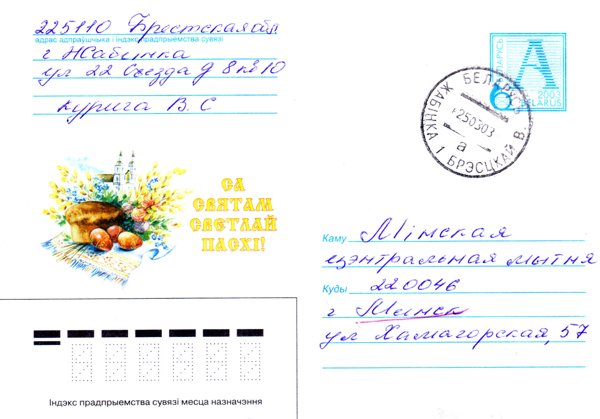 225110 Брестская обл
адрас адпраўшчыка і індэкс прадпрыемства сувязі
г Жабинка
ул 22 Съезда д 8 кв 10
Курига В. С
БЕЛАРУСЬ
А
2003
BELARUS
БЕЛАРУСЬ
250303
а
ЖАБІНКА 1 БРЭСЦКАЙ В.
СА
СВЯТАМ
СВЕТЛАЙ
ПАСХІ!
Каму Мінская
цэнтральная мытня
Куды 220046
г Минск
ул Хамагорская, 57
Індэкс прадпрыемства сувязі месца назначэння